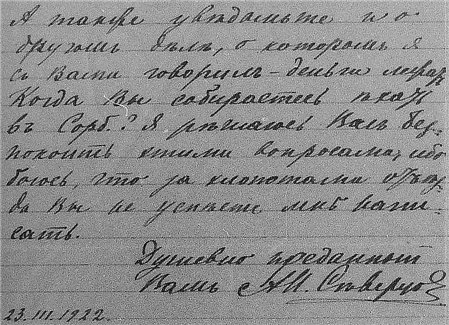 А также увѣдомьте и о
другомъ дѣлѣ, о которомъ я
съ Вами говорилъ – деньги
Когда Вы собираетесь ѣхать
въ Сорб.? Я рѣшаюсь Васъ без-
покоить этими вопросами, ибо
боюсь, что за хлопотами отъѣз-
да Вы не успѣете мнѣ напи-
сать.
Душевно преданный
Вамъ А.Н. Сѣверцов
23.III.1922.